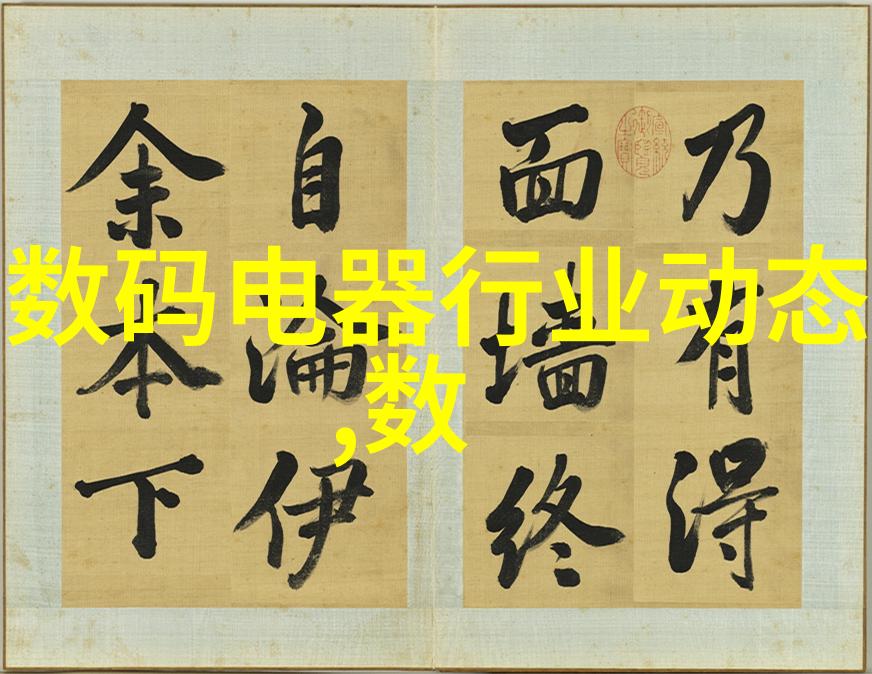 数码电器行业动态
,数
乃有得
面墙终
自淪伊
余本下